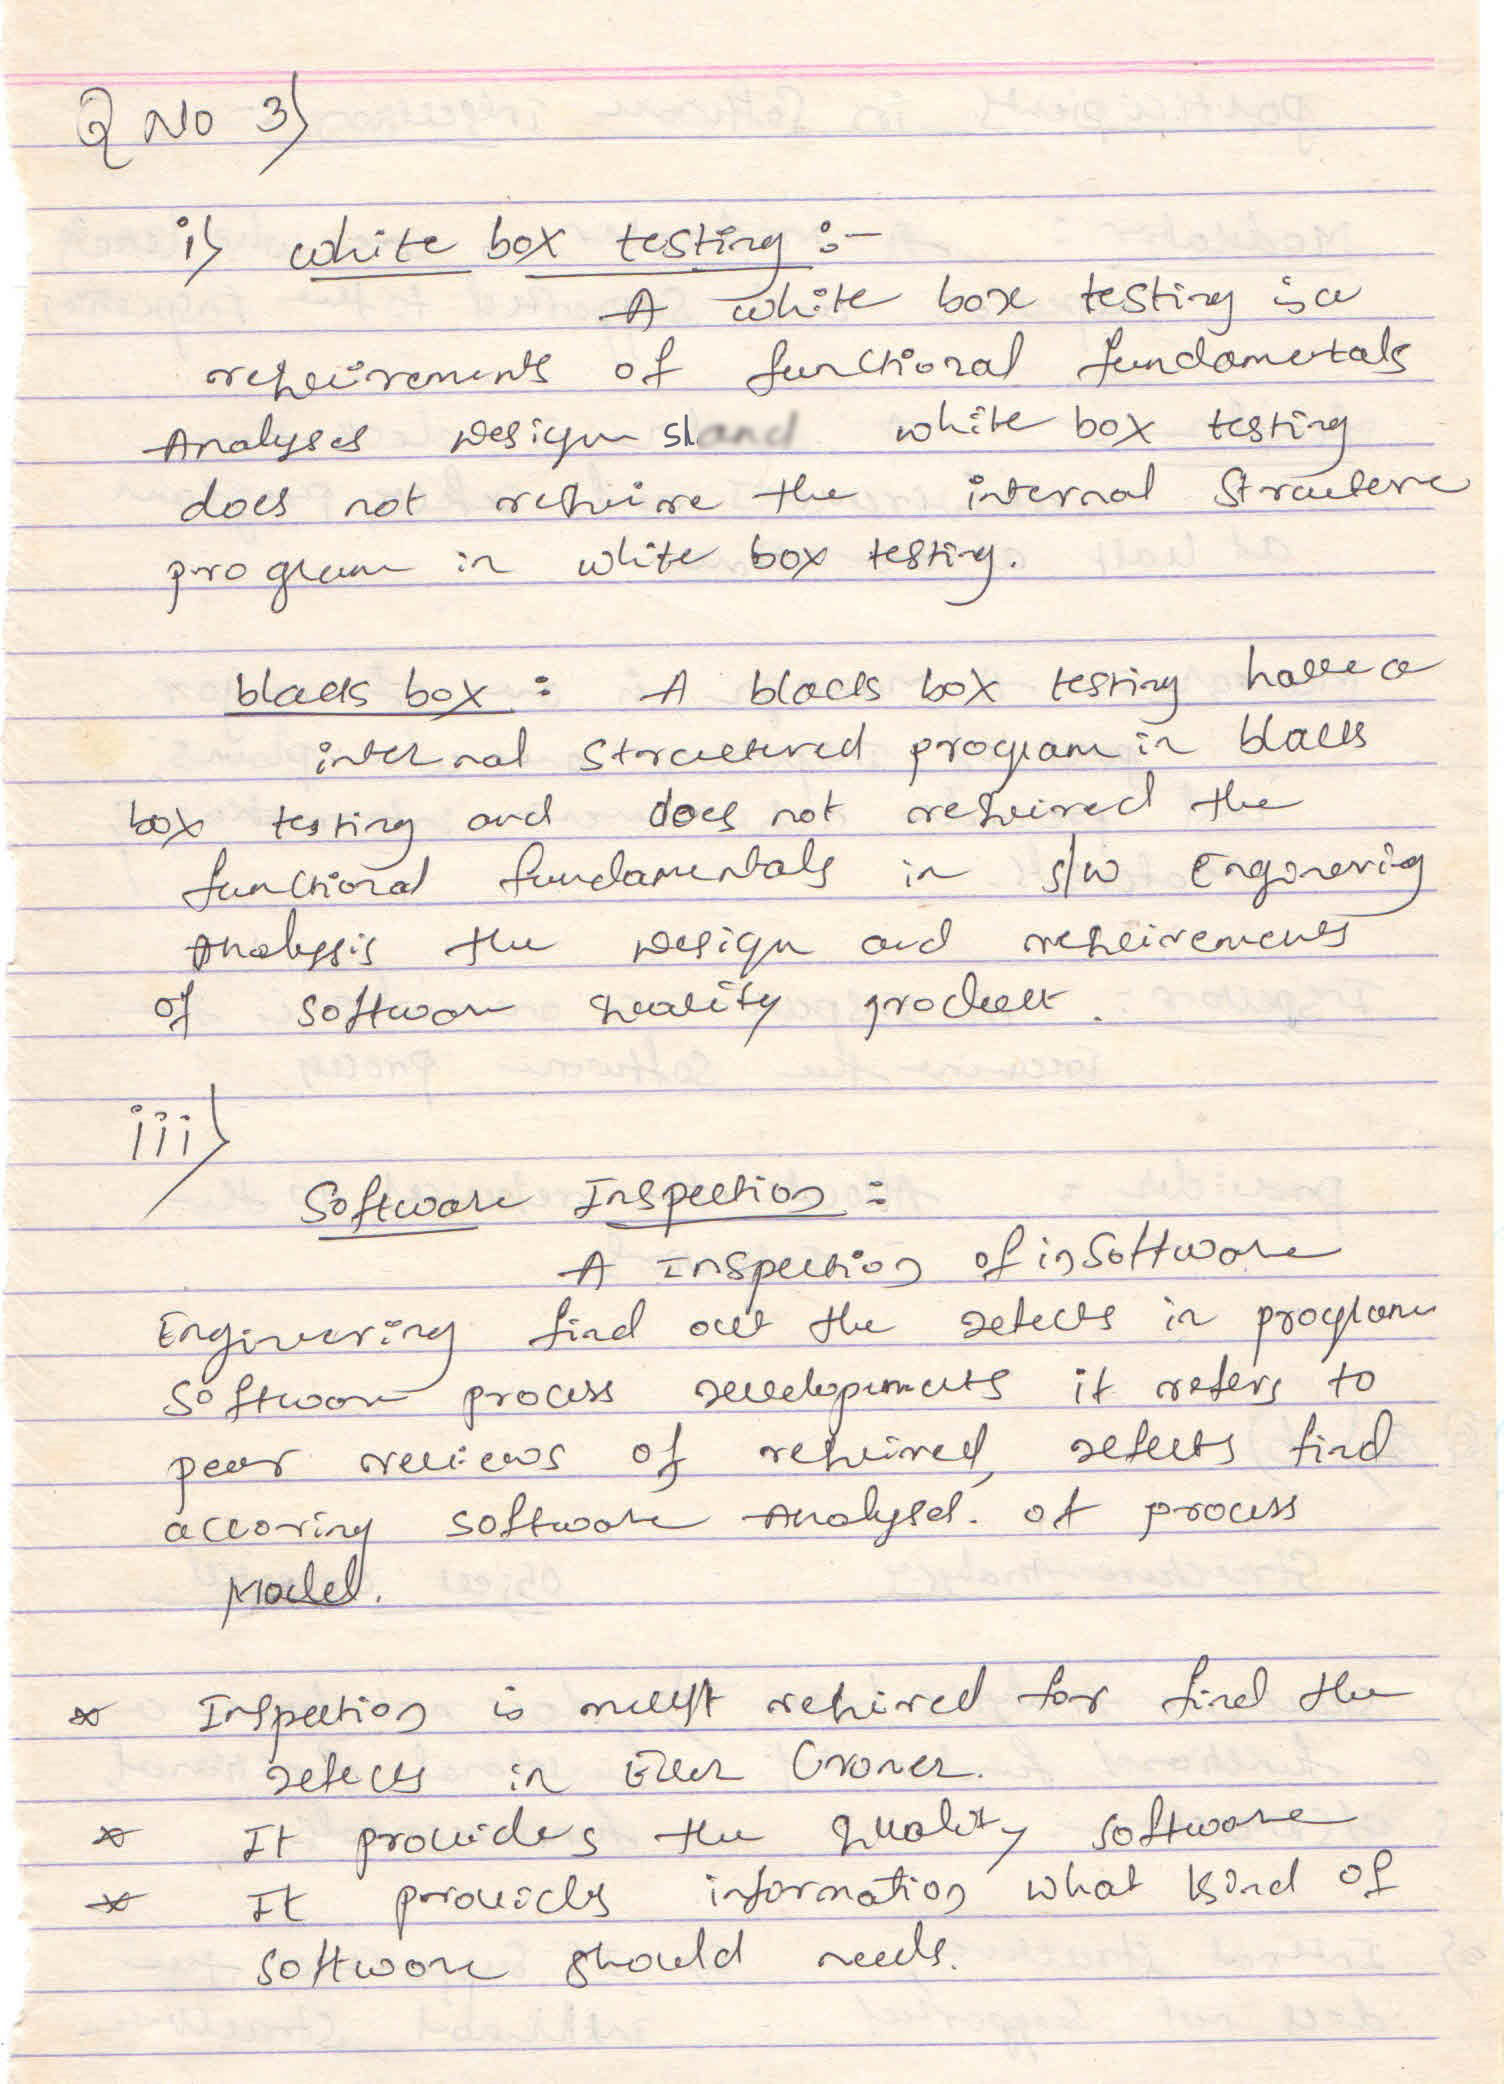 Q No 3)
i) white box testing :-
A white box testing is a
requirements of functional fundamentals
Analyses Design and white box testing
does not require the internal Structure
program in white box testing.
black box : A black box testing have a
internal structured program in black
box testing and does not required the
functional fundamentals in s/w Enginering
Analysis the Design and requirements
of software quality product.
iii)
Software Inspection :
A Inspection of in Software
Enginering find out the defects in program
software process developments it refers to
peer reviews of required, defects find
accoring software Analysed. of process
Model.
* Inspection is must reqired for find the
defects in
* It provides the quality software
* It provides information what kind of
software should needs.